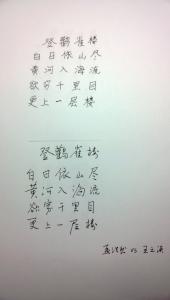 登鹳雀楼
白日依山尽
黄河入海流
欲穷千里目
更上一层楼
登鹳雀楼
白日依山尽
黄河入海流
欲穷千里目
更上一层楼
孟浩然 vs 王之涣